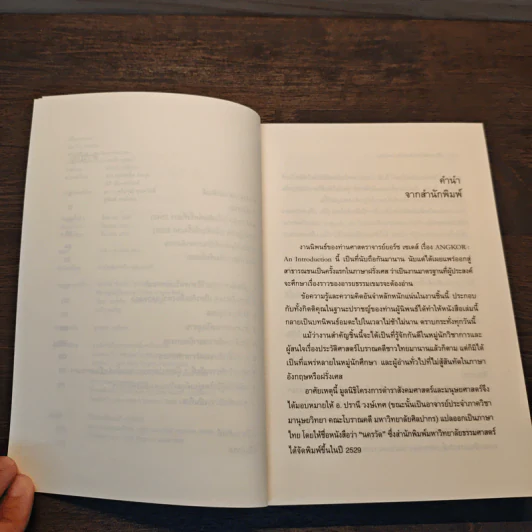 คำนำ
จากสำนักพิมพ์
งานนิพนธ์ของท่านศาสตราจารย์ยอร์ช เซเดส์ เรื่อง ANGKOR :
An Introduction นี้ เป็นที่นับถือกันมานาน นับแต่ได้เผยแพร่ออกสู่
สาธารณชนเป็นครั้งแรกในภาษาฝรั่งเศส ว่าเป็นงานมาตรฐานที่ผู้ประสงค์
จะศึกษาเรื่องราวของอารยธรรมเขมรจะต้องอ่าน
ข้อความรู้และความคิดอันจำหลักหนักแน่นในงานชิ้นนี้ ประกอบ
กับทั้งกิตติคุณในฐานะปราชญ์ของท่านผู้นิพนธ์ได้ทำให้หนังสือเล่มนี้
กลายเป็นบทนิพนธ์อมตะไปในเวลาไม่ช้าไม่นาน ตราบกระทั่งทุกวันนี้
แม้ว่างานสำคัญชิ้นนี้จะได้เป็นที่รู้จักกันดีในหมู่นักวิชาการและ
ผู้สนใจเรื่องประวัติศาสตร์โบราณคดีชาวไทยมานานแล้วก็ตาม แต่ก็มิได้
เป็นที่แพร่หลายในหมู่นักศึกษา และผู้อ่านทั่วไปที่ไม่สู้สันทัดในภาษา
อังกฤษหรือฝรั่งเศส
อาศัยเหตุนี้ มูลนิธิโครงการตำราสังคมศาสตร์และมนุษยศาสตร์จึง
ได้มอบหมายให้ อ. ปรานี วงษ์เทศ (ขณะนั้นเป็นอาจารย์ประจำภาควิชา
มานุษยวิทยา คณะโบราณคดี มหาวิทยาลัยศิลปากร) แปลออกเป็นภาษา
ไทย โดยให้ชื่อหนังสือว่า "นครวัด" ซึ่งสำนักพิมพ์มหาวิทยาลัยธรรมศาสตร์
ได้จัดพิมพ์ขึ้นในปี 2529